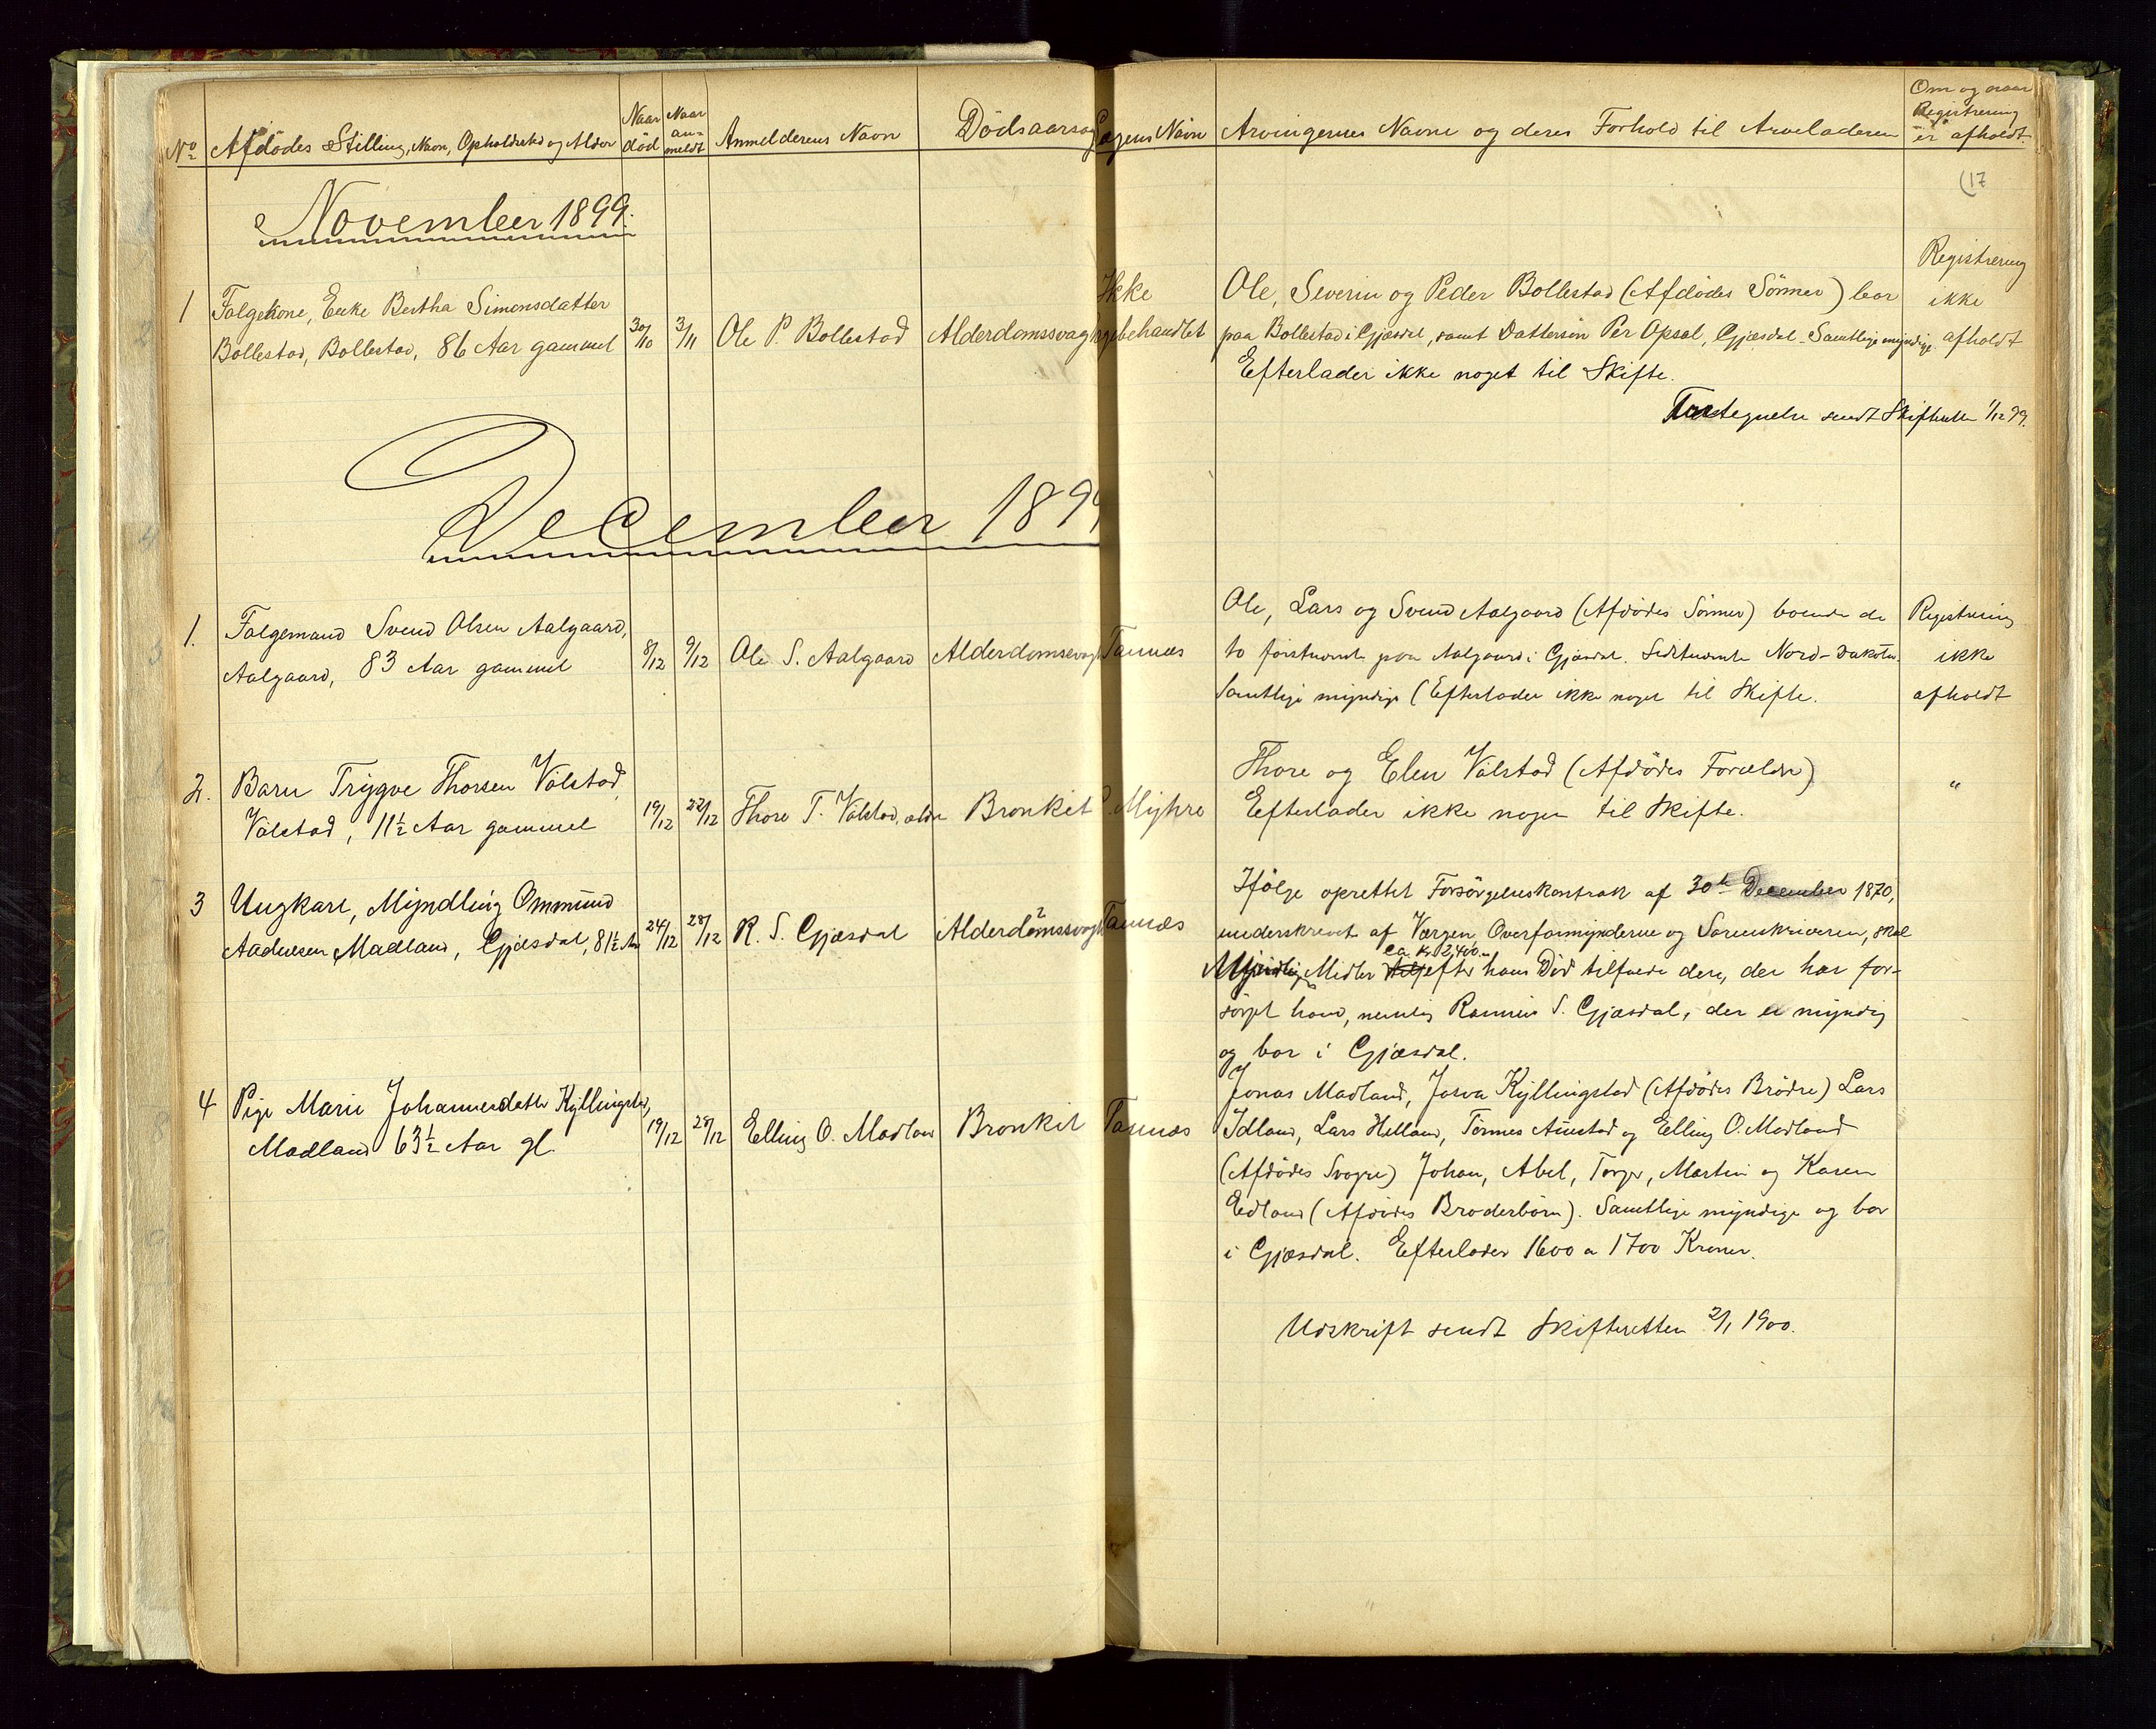 No Afdödes Stilling, Navn, Opholdssted og Alder Naar död Naar an-meldt Anmelderens Navn Dödsaarsag Lægens Navn Arvingernes Navne og deres Forhold til Arveladeren Om og naar Registrering er afholdt.
(17
November 1899.
1 Folgekone, Enke Bertha Simonsdatter
Bollestad, Bollestad, 86 Aar gammel 30/10 3/11 Ole P. Bollestad Alderdomssvaghed Ikke lægebehandlet
Ole, Severin og Peder Bollestad (Afdödes Sönner) bor
paa Bollestad i Gjæsdal, samt Dattersön Per Opsal, Gjæsdal - Samtlige myndige
Efterlader ikke noget til Skifte.
Registrering
ikke
afholdt
Fortegnelse sendt Skifteretten 1/12 99.
December 1899
1. Folgemand Svend Olsen Aalgaard,
Aalgaard, 83 Aar gammel 8/12 9/12 Ole S. Aalgaard Alderdomssvagh Tannæs
Ole, Lars og Svend Aalgaard (Afdödes Sönner) boende de
to förstnævnte paa Aalgaard i Gjæsdal. Sidstnævnte Nord-Dakota.
Samtlige myndige (Efterlader ikke noget til Skifte.
Registrering
ikke
afholdt
2. Barn Trygve Thorsen Válstad,
Válstad, 11½ Aar gammel 19/12 22/12 Thore T. Válstad, Bronkit Myhre
Thore og Elen Válstad (Afdödes Forældre)
Efterlader ikke noget til Skifte.
"
3 Ungkarl, Myndling Ommund
Aadnesen Madland, Gjæsdal, 81½ Aar 24/12 28/12 R. S. Gjæsdal Alderdomssvagh Tannæs
Ifölge oprettet Forsörgelseskontrakt af 30te December 1870,
underskrevet af Værgen, Overformynderne og Sorenskriveren, skal
ca. Kr 2,400.-
Myndlings Midler efter hans Död tilfalde dem, der har for-
sörget ham, nemlig Rasmus S. Gjæsdal, der er myndig
og bor i Gjæsdal.
4 Pige Marie Johannesdatter Kyllingstad,
Madland 63½ Aar gl. 19/12 28/12 Elling O. Madland Bronkit Tannæs
Jonas Madland, Josva Kyllingstad (Afdödes Brödre) Lars
Idland, Lars Helland, Tönnes Auestad og Elling O. Madland
(Afdödes Svogre) Johan, Abel, Torger, Martin og Karen
Edland (Afdödes Broderbörn). Samtlige myndige og bor
i Gjæsdal. Efterlader 1600 a 1700 Kroner.
Udskrift sendt Skifteretten 2/1 1900.